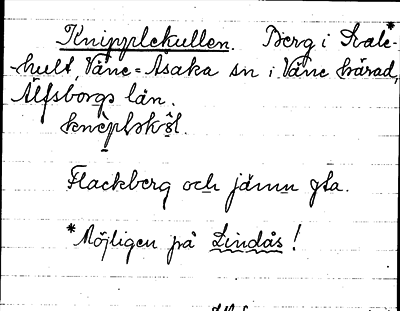 Knipplekullen. Berg i Svale-*
hult, Väne-Åsaka sn i Väne härad,
Älfsborgs län.
knèplskøl.
Flackberg och jämn yta.
*Möjligen på Lindås!